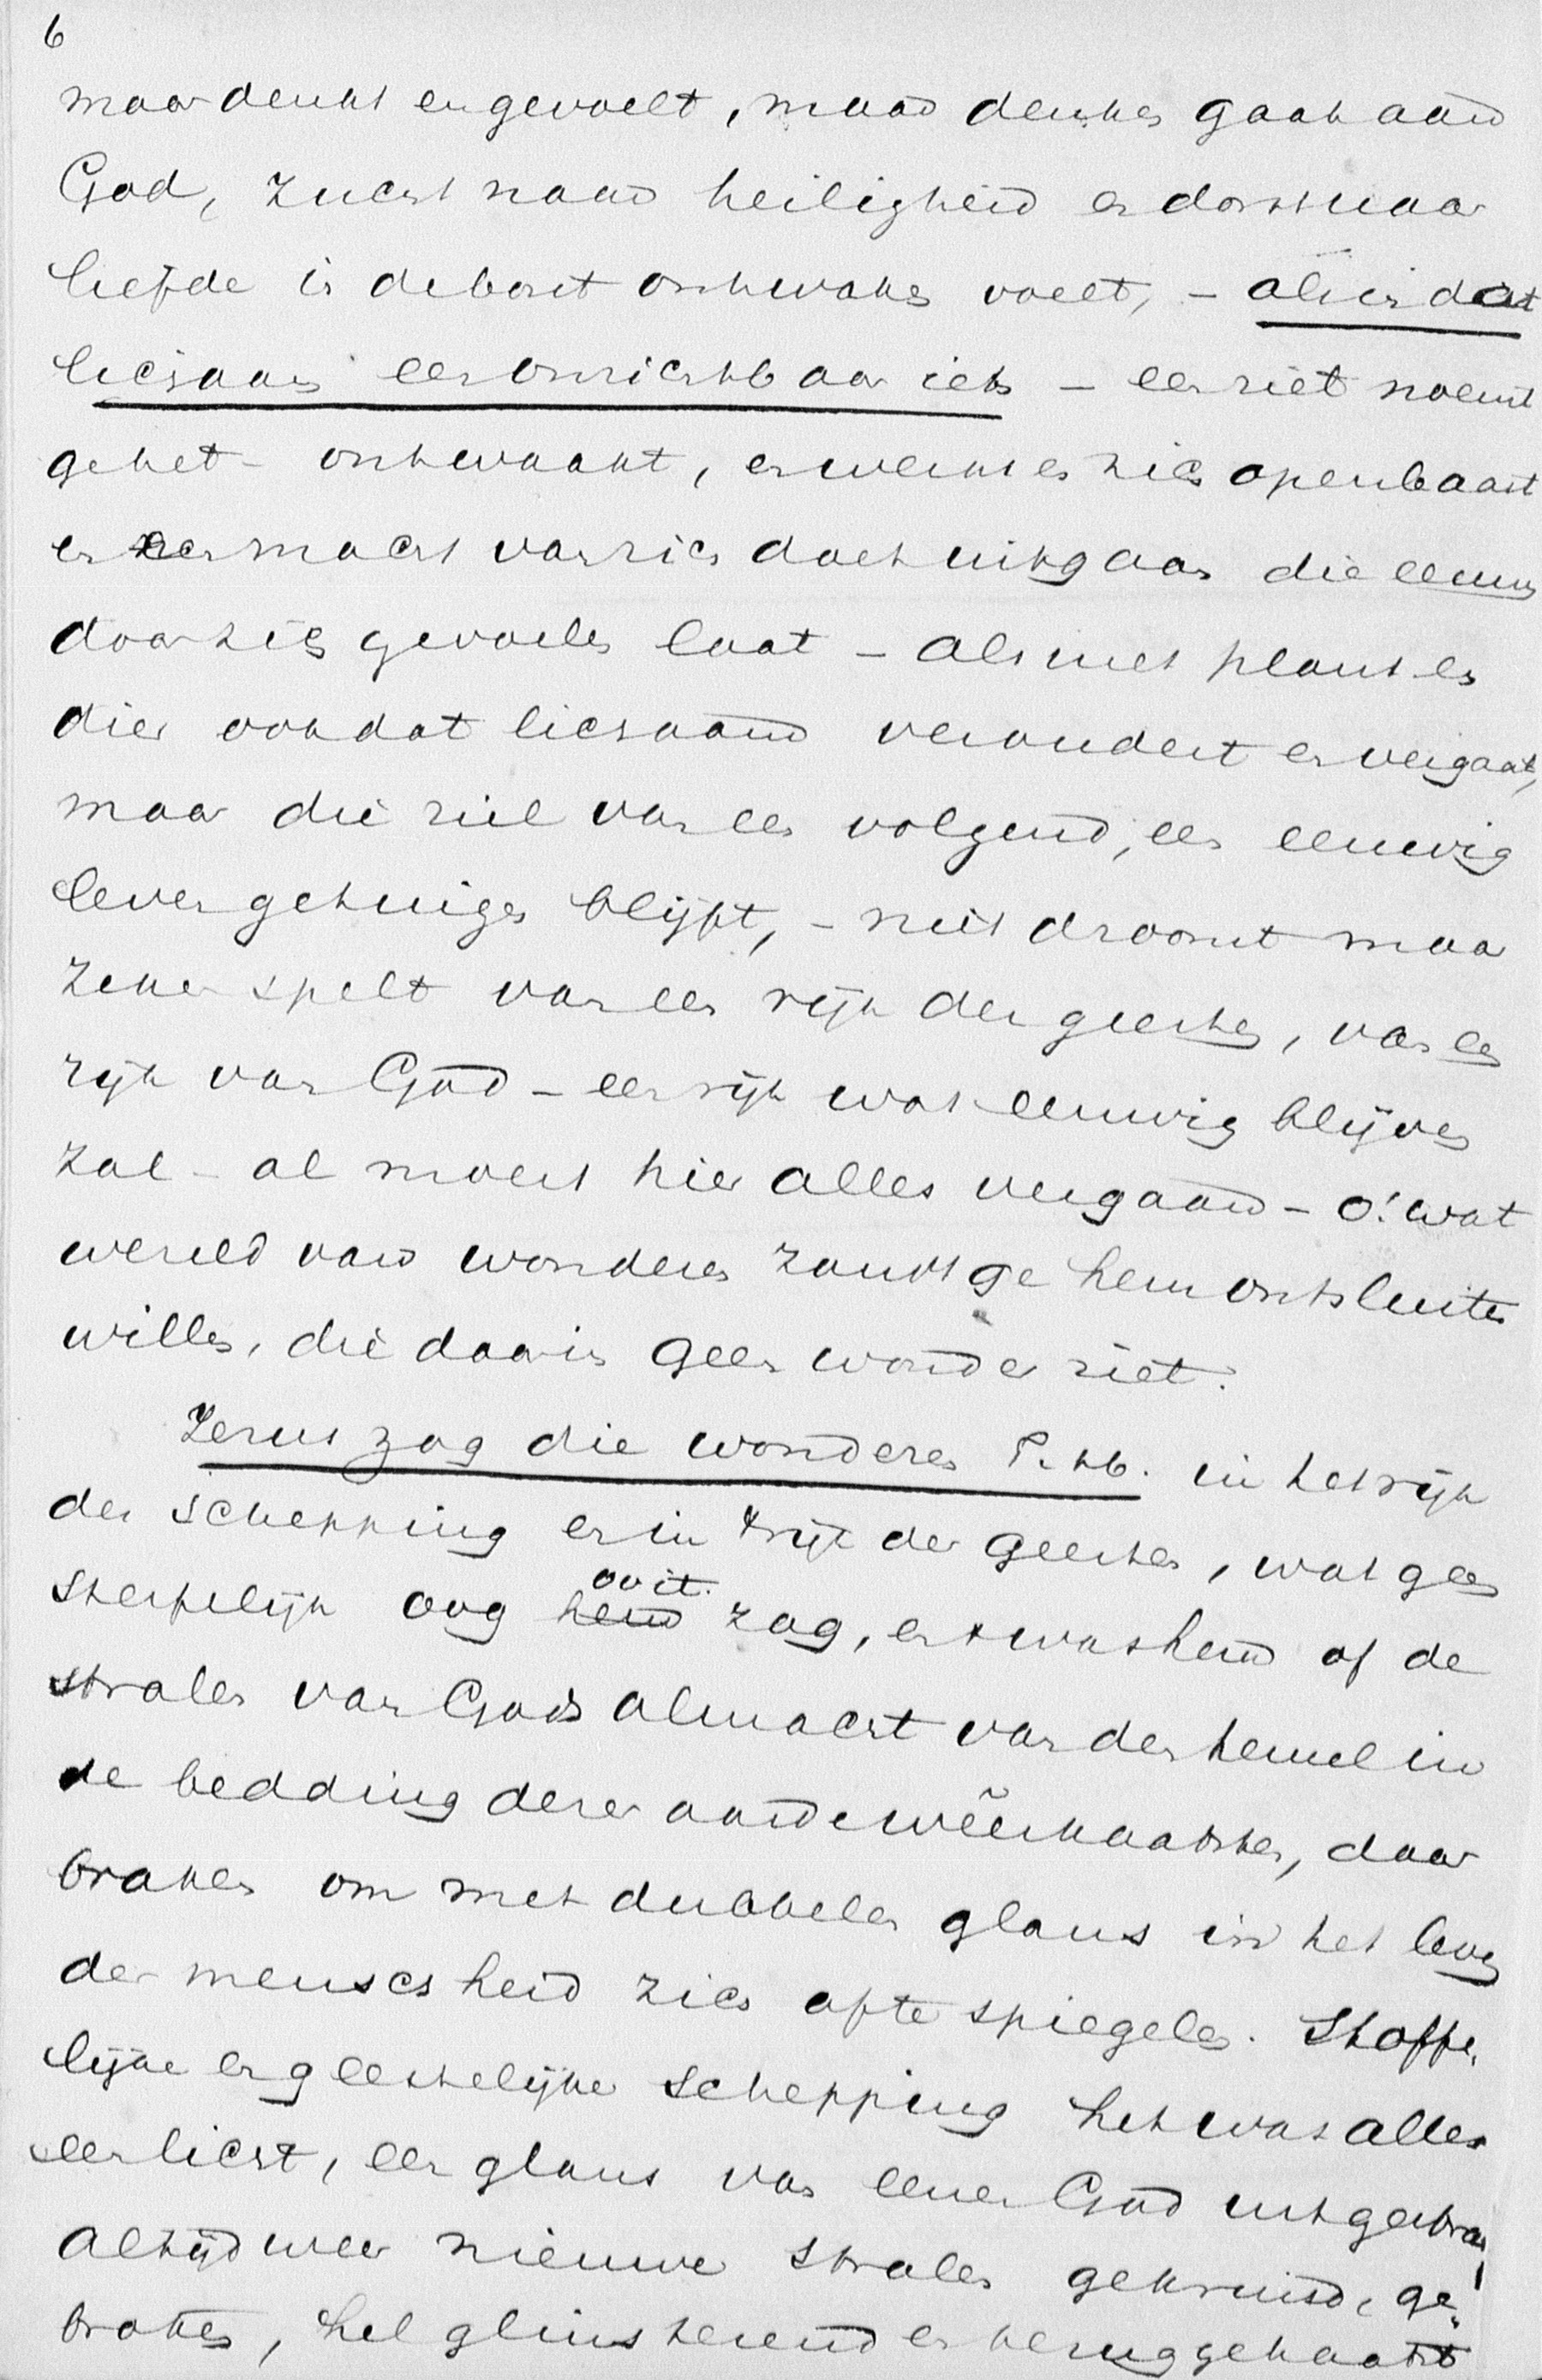 6
maar denkt en gevoelt, maar denken gaat aan
God, zucht naar heiligheid en dorst naar
liefde in de borst ontwaken voelt, – als in dat
lichaam een onzichtbaar iets – een ziel noemt
ge het – ontwaakt, en werkt en zich openbaart
en een macht van zich doet uitgaan die eeuwen
door zich gevoelen laat – als met plant en
dier ook dat lichaam verandert en vergaat,
maar die ziel van een volgend, een eeuwig
leven getuigen blijft, – niet droomt maar
zeker spelt van een rijk der geesten, van een
rijk van God – een rijk wat eeuwig blijven
zal – al moest hier alles vergaan – o! wat
wereld van wonderen zoudt ge hem ontsluiten
willen, die daarin geen wonder ziet.
Jezus zag die wonderen T. hb. in het rijk
der schepping en in 't rijk der geesten, wat geen
sterfelijk oog ooit zag, en 't was hem of de
stralen van Gods almacht van den hemel in
de bedding dezer aarde weêrkaatsten, daar
braken om met dubbelen glans in het leven
der menschheid zich af te spiegelen. Stoffe-
lijke en geestelijke schepping het was alles
een licht, een glans van eenen God uitgestraald
altijd weer nieuwe stralen gekruisd, ge-
broken, hel glinsterend en teruggekaatst